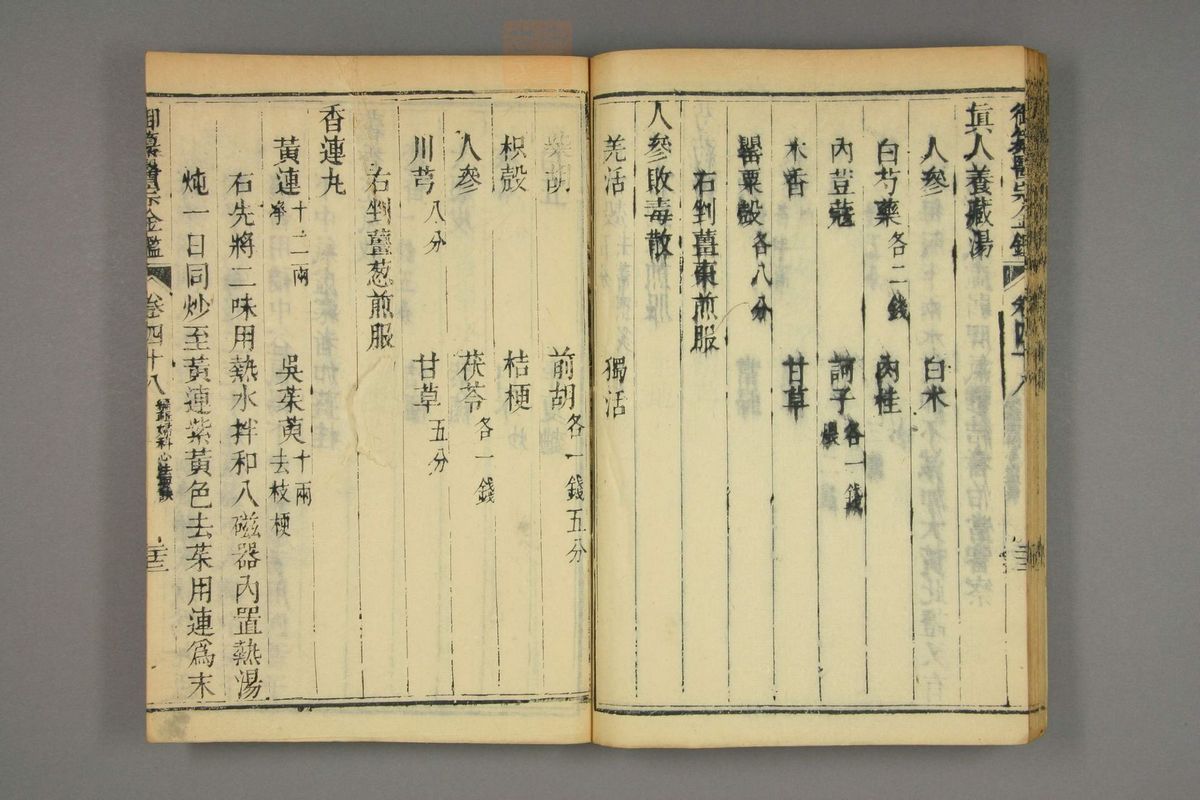 眞人養臟湯
人參 白朮
白芍藥各二錢 肉桂
內荳蔻 訶子各一錢 煨
木香 甘草
罌粟殼各八分
右剉薑棗煎服
人參敗毒散
羌活 獨活
柴胡 前胡各一錢五分
枳殼 桔梗
人參 茯苓各一錢
川芎八分 甘草五分
右剉薑葱煎服
香連丸
黃連十二兩淨 吳茱萸十兩去枝梗
右先將二味用熱水拌和入磁器內置熱湯
炖一日同炒至黃連紫黃色去茱用連爲末
御纂醫宗金鑑 卷四十八 編輯婦科心法要訣